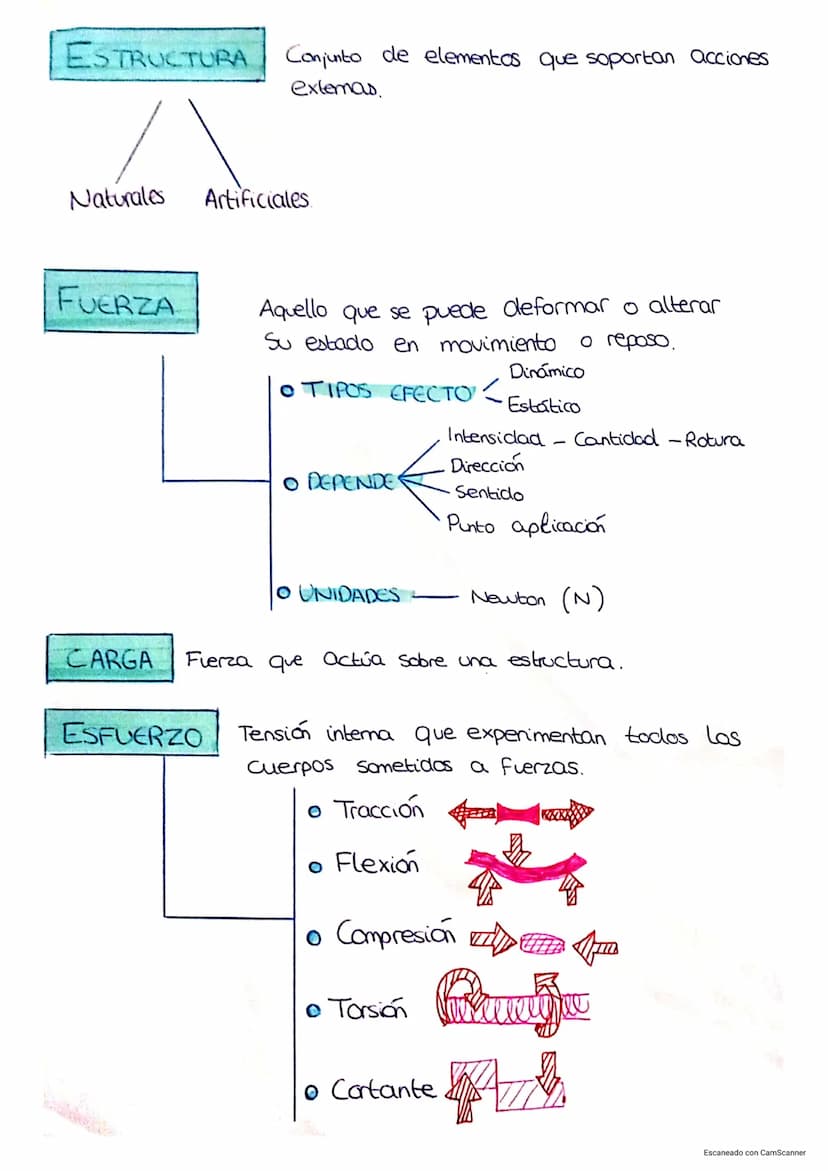 ESTRUCTURA
Conjunto de elementos que soportan acciones
externas.
Naturales
Artificiales
FUERZA
Aquello que se puede deformar o alterar
su estado en movimiento o reposo.
TIPOS EFECTO
Dinámico
Estático
DEPENDE
Intensidad - Cantidad - Rotura
Dirección
Sentido
Punto aplicación
UNIDADES
Newton (N)
CARGA
Fuerza que actúa sobre una estructura.
ESFUERZO
Tensión interna que experimentan todos los
cuerpos sometidos a fuerzas.
Tracción
Flexión
Compresión
Torsión
Cortante
Escaneado con CamScanner